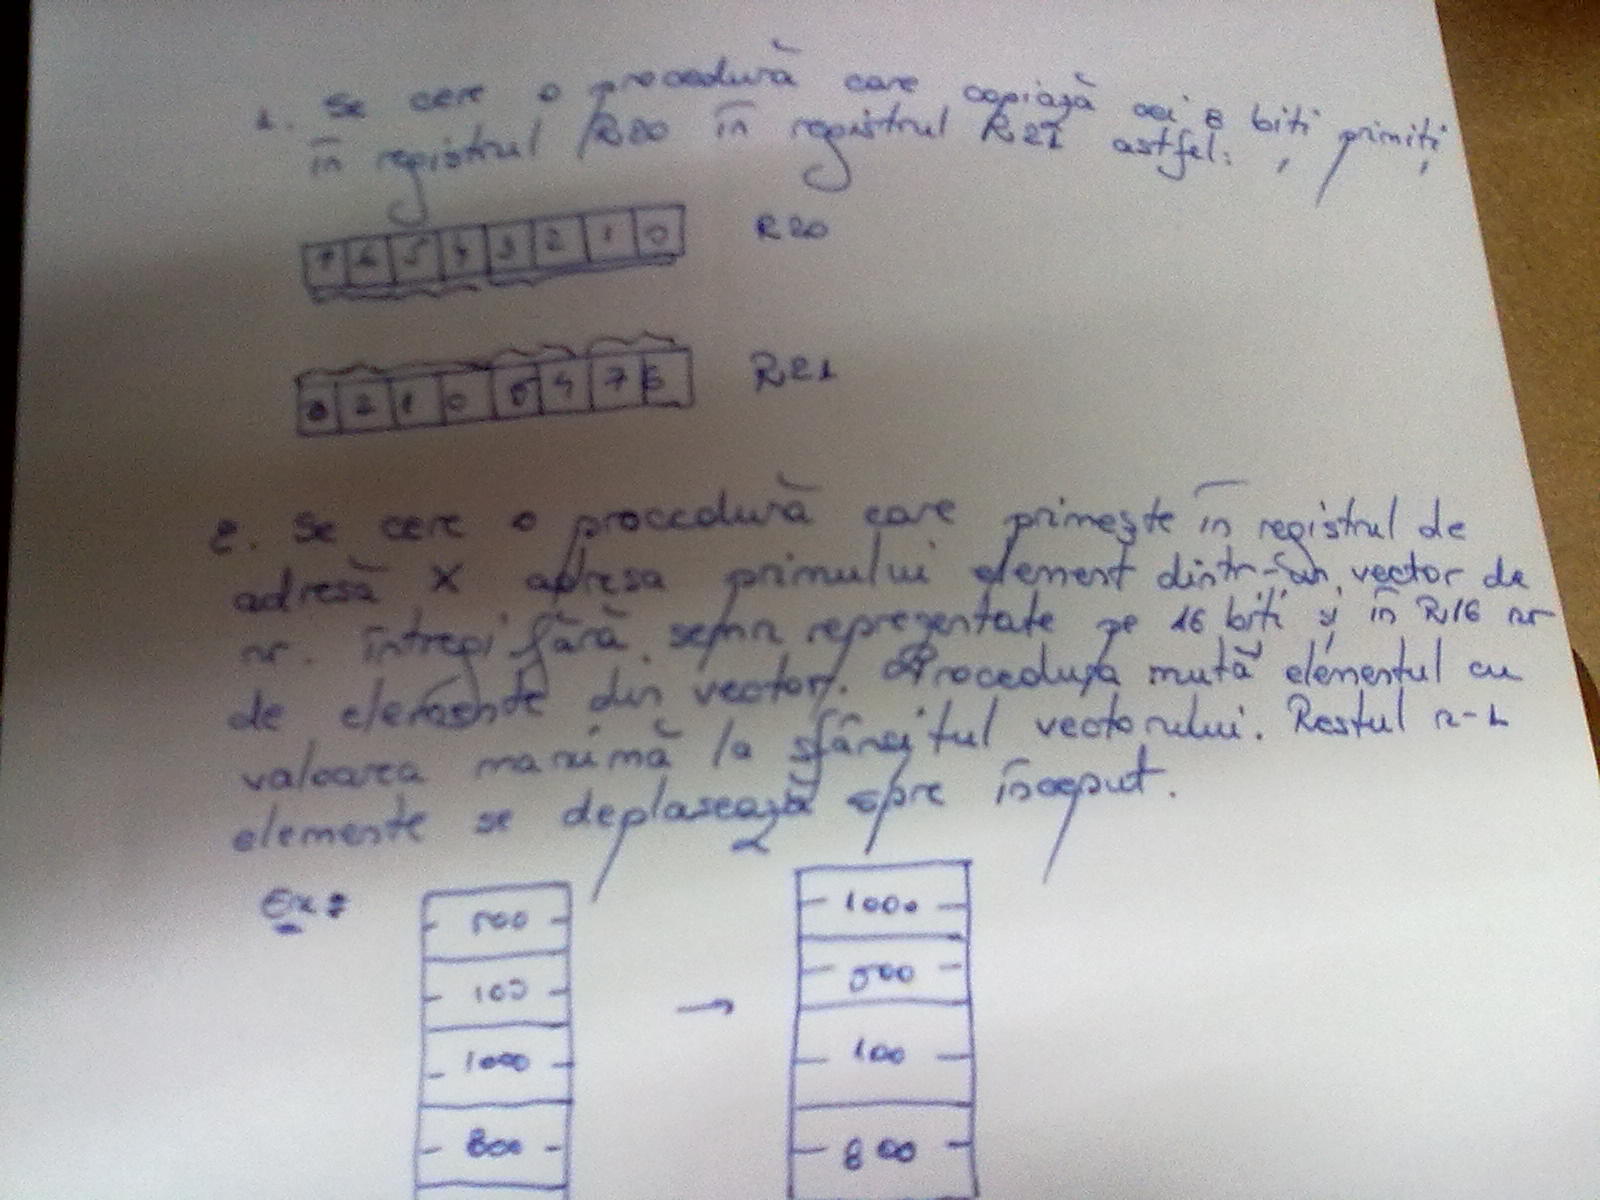 1. Se cere o procedură care copiază cei 8 biți primiți
în registrul R20 în registrul R21 astfel:
7 6 5 4 3 2 1 0 R20
3 2 1 0 5 4 7 6 R21
2. Se cere o procedură care primește în registrul de
adresă X adresa primului element dintr-un vector de
nr. întregi fără semn reprezentate pe 16 biți și în R16 nr
de elemente din vector. Procedura mută elementul cu
valoarea maximă la sfârșitul vectorului. Restul n-1
elemente se deplasează spre început.
Ex:
500 1000
100 500
→
1000 100
800 800